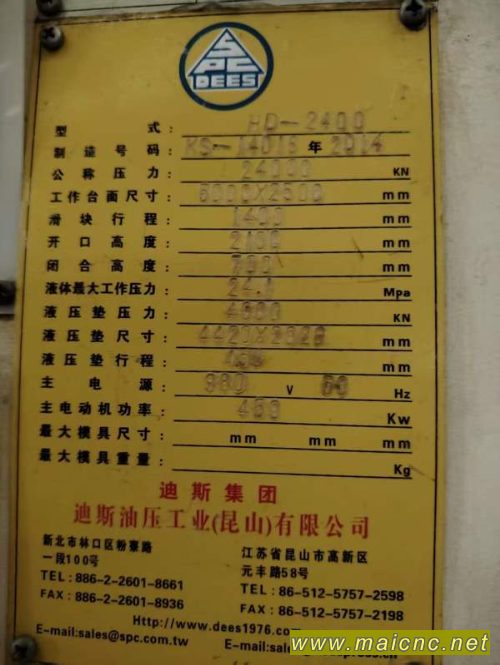 SPC
DEES
型 式: HD-2400
制造号码: KS-14015 年 2014
公称压力: 24000 KN
工作台面尺寸: 6000X2500 mm
滑块行程: 1400 mm
开口高度: 2100 mm
闭合高度: 700 mm
液体最大工作压力: Mpa
液压垫压力: 4000 KN
液压垫尺寸: mm
液压垫行程: mm
主 电 源: V Hz
主电动机功率: Kw
最大模具尺寸: mm mm mm
最大模具重量: Kg
迪斯集团
迪斯油压工业(昆山)有限公司
新北市林口区粉寮路
一段100号
TEL:886-2-2601-8661
FAX:886-2-2601-8936
江苏省昆山市高新区
元丰路58号
TEL: 86-512-5757-2598
FAX: 86-512-5757-2198
Http://www.dees1976.com
E-mail:sales@spc.com.tw
www.maicnc.net